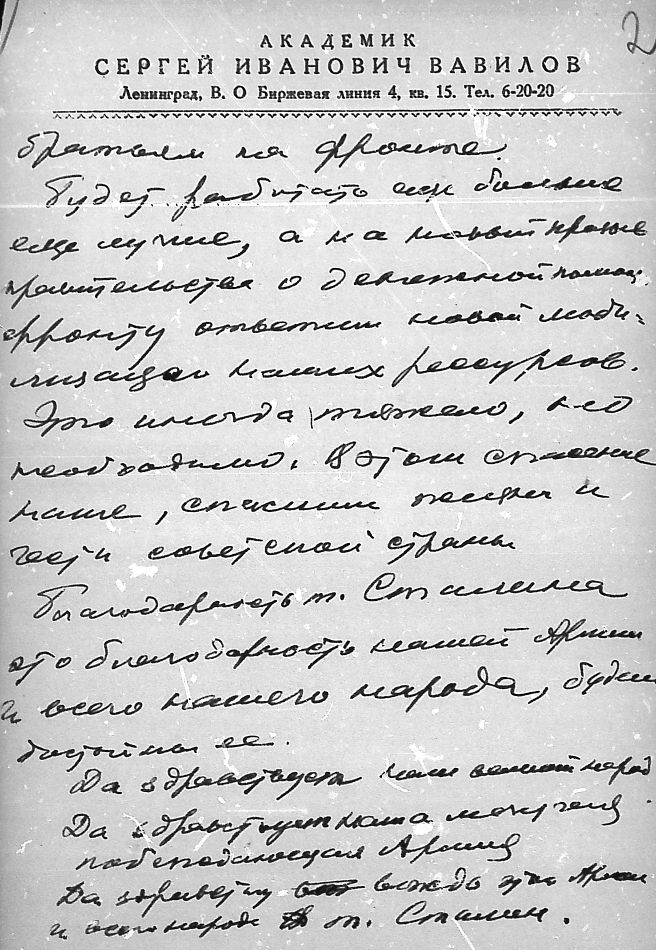 2
АКАДЕМИК
СЕРГЕЙ ИВАНОВИЧ ВАВИЛОВ
Ленинград, В. О Биржевая линия 4, кв. 15. Тел. 6-20-20
братьям на фронте.
Будет работать еще больше
еще лучше, а на новый призыв
правительства о денежной помощи
фронту ответим новой моби-
лизацией наших ресурсов.
Это иногда тяжело, но
необходимо. В этом спасение
наше, спасение жизни и
чести советской страны
Благодарность т. Сталина
это благодарность нашей Армии
и всего нашего народа, будем
достойны ее.
Да здравствует наш великий народ
Да здравствует наша могучая
побеждающая Армия
Да здравствует вождь этой Армии
и всего народа т. Сталин.